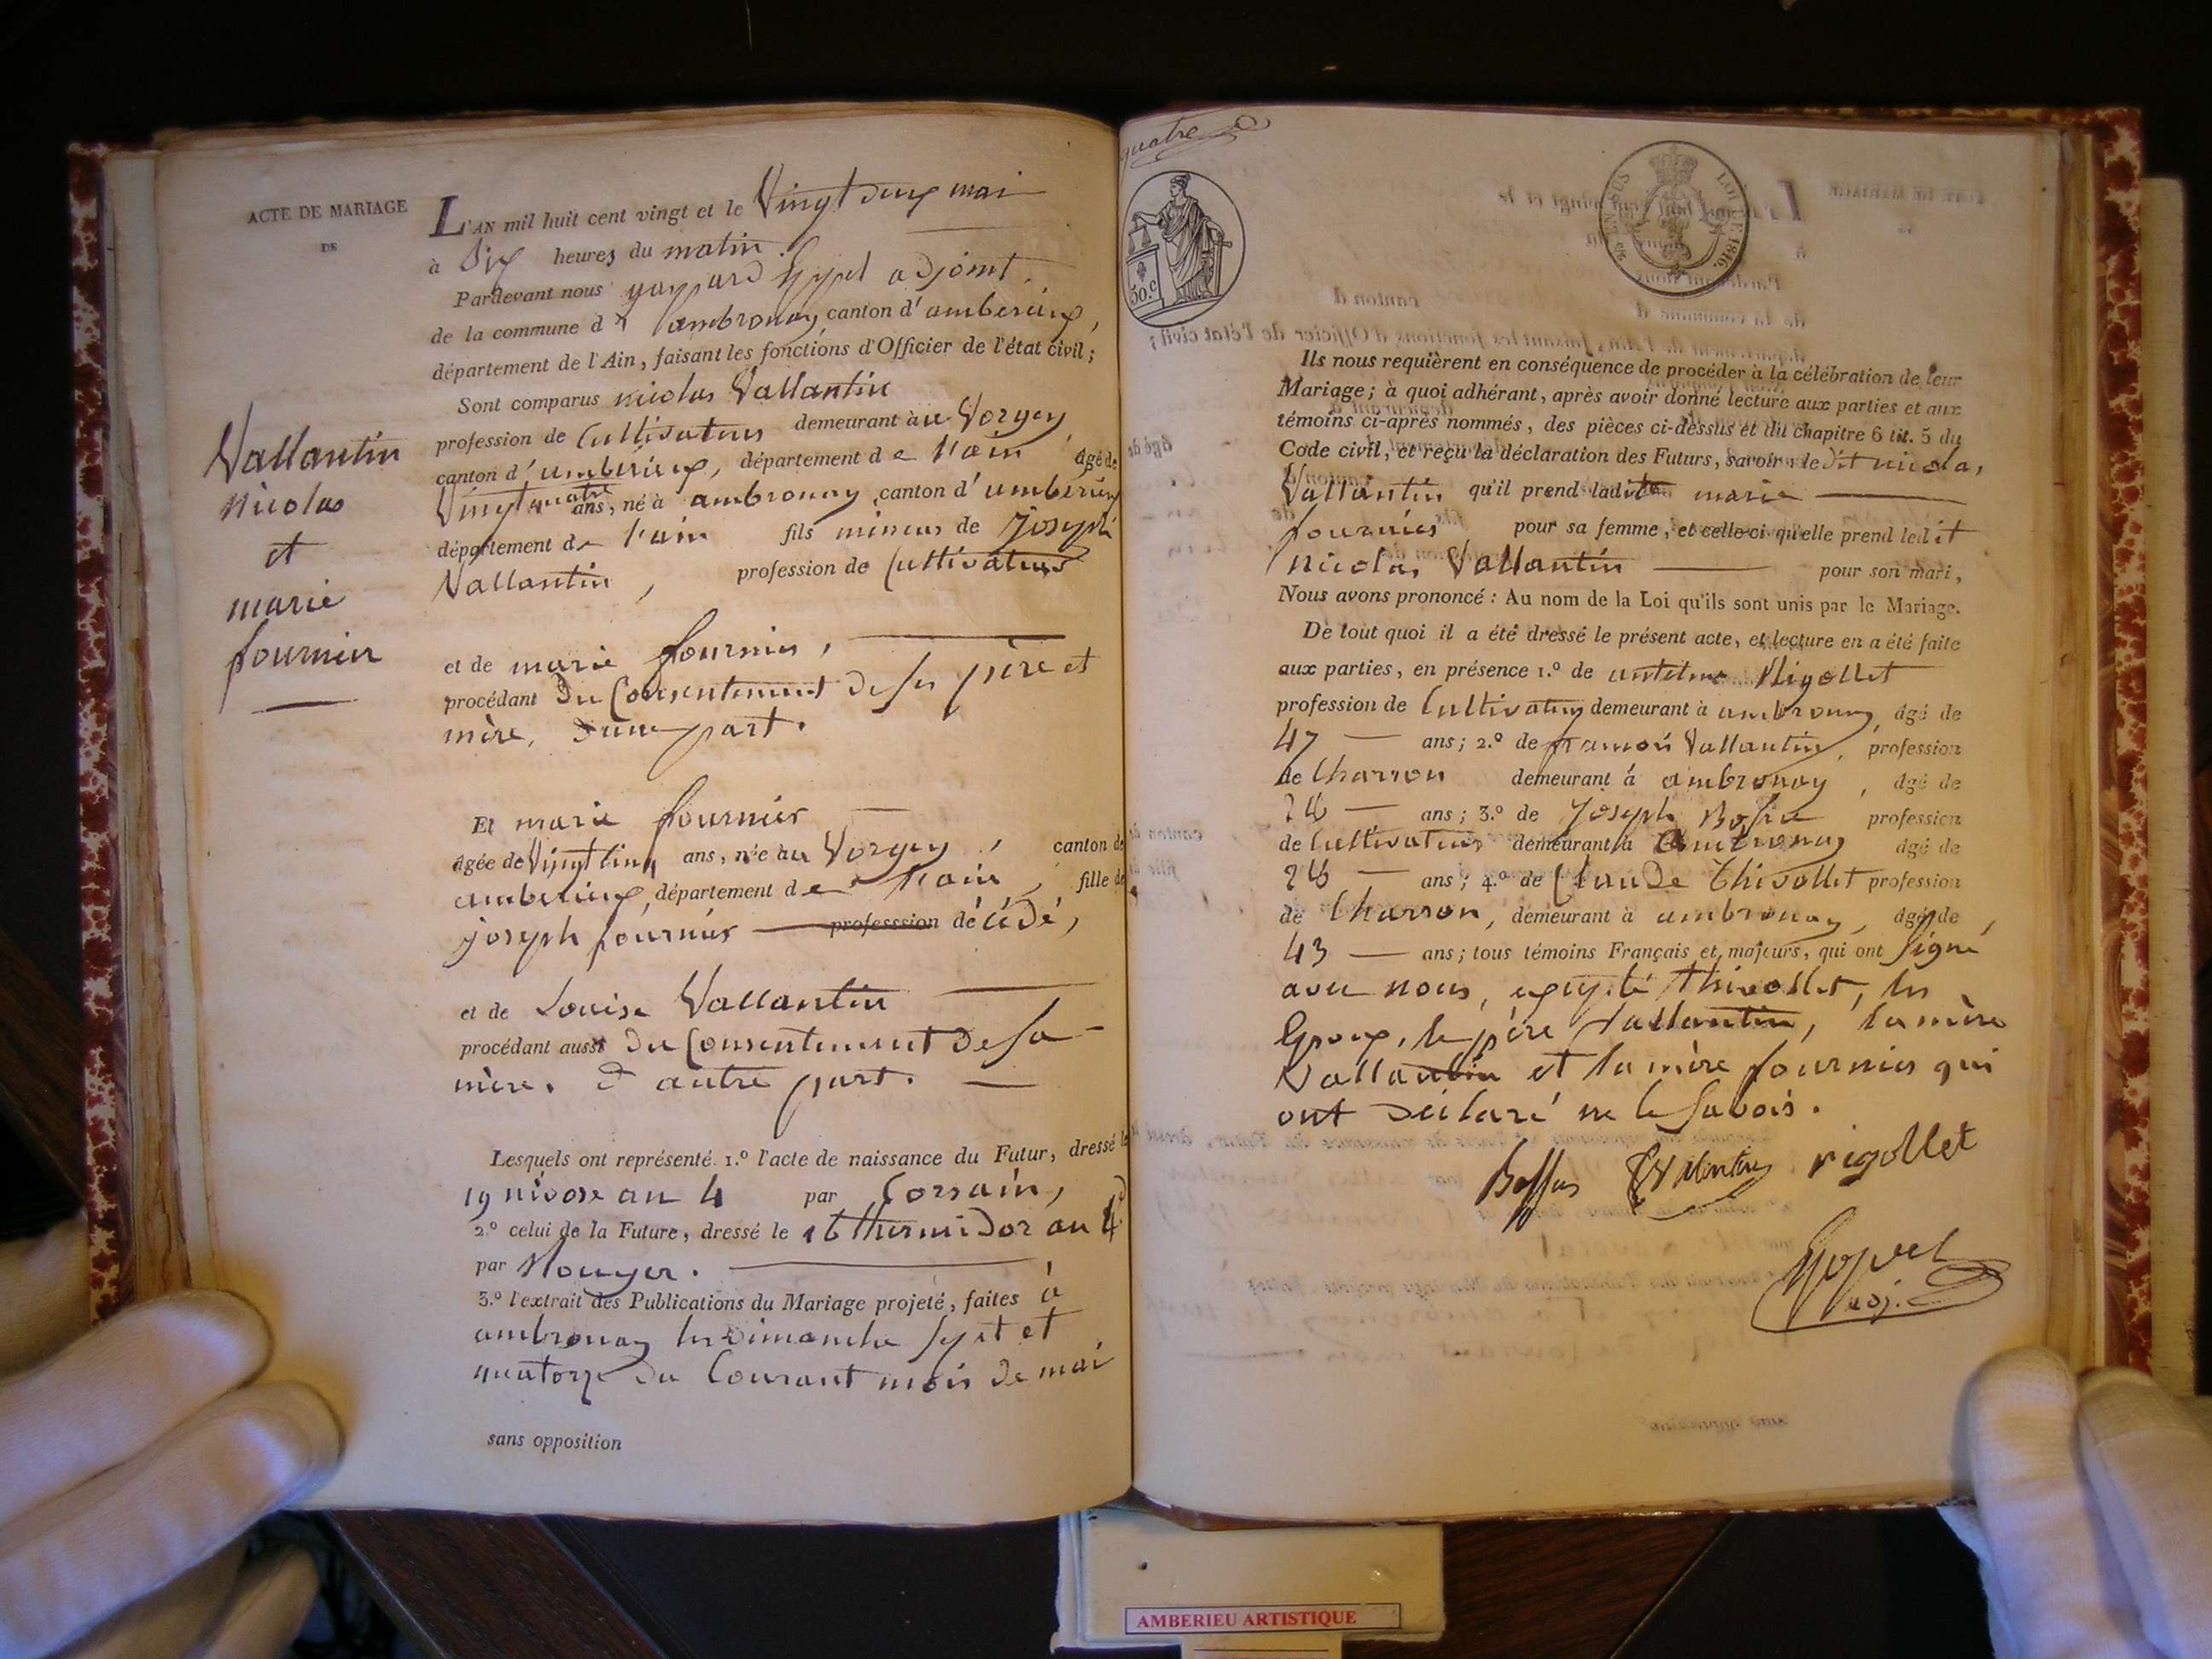 ACTE DE MARIAGE
DE
Vallantin
nicolas
et
marie
fournier
L'AN mil huit cent vingt et le Vingt deux mai
à Dix heures du matin
Pardevant nous gaspard adjoint
de la commune d' ambronay canton d'amberieux,
département de l'Ain, faisant les fonctions d'Officier de l'état civil;
Sont comparus nicolas Vallantin
profession de Cultivateur demeurant à au Vorgey
canton d'amberieux, département de l'ain âgé de
Vingt quatre ans, né à ambronay canton d'amberieux
département de l'ain fils mineur de Joseph
Vallantin, profession de Cultivateur
et de marie fournier,
procédant Du Consentement de ses père et
mère, d'une part.
Et marie fournier
âgée de Vingt cinq ans, née au Vorgey, canton de
amberieux, département de l'ain, fille de
joseph fournier profession décédé,
et de Louise Vallantin
procédant aussi du Consentement de sa
mère. d'autre part.
Lesquels ont représenté 1.º l'acte de naissance du Futur, dressé le
19 nivose an 4 par Corsain,
2.º celui de la Future, dressé le 16 thermidor an 4
par
3.º l'extrait des Publications du Mariage projeté, faites à
ambronay les dimanche sept et
quatorze du Courant mois de mai
sans opposition
quatre
30.c
LOI DE 1816.
EN SUS
Ils nous requièrent en conséquence de procéder à la célébration de leur
Mariage; à quoi adhérant, après avoir donné lecture aux parties et aux
témoins ci-après nommés, des pièces ci-dessus et du chapitre 6 tit. 5 du
Code civil, et reçu la déclaration des Futurs, savoir: le dit nicolas
Vallantin qu'il prend ladite marie
fournier pour sa femme, et celle-ci qu'elle prend ledit
nicolas Vallantin pour son mari,
Nous avons prononcé: Au nom de la Loi qu'ils sont unis par le Mariage.
De tout quoi il a été dressé le présent acte, et lecture en a été faite
aux parties, en présence 1.º de antelme Rigollet
profession de Cultivateur demeurant à ambronay, âgé de
47 ans; 2.º de françois Vallantin, profession
de Charron demeurant à ambronay, âgé de
ans; 3.º de Joseph profession
de Cultivateur demeurant à ambronay âgé de
26 ans; 4.º de Claude Thivollet profession
de Charron, demeurant à ambronay, âgé de
43 ans; tous témoins Français et majeurs, qui ont signé
avec nous, excepté Thivollet, les
Epoux, le père Vallantin, la mère
Vallantin et la mère fournier qui
ont déclaré ne le savoir.
rigollet
adj.
AMBERIEU ARTISTIQUE